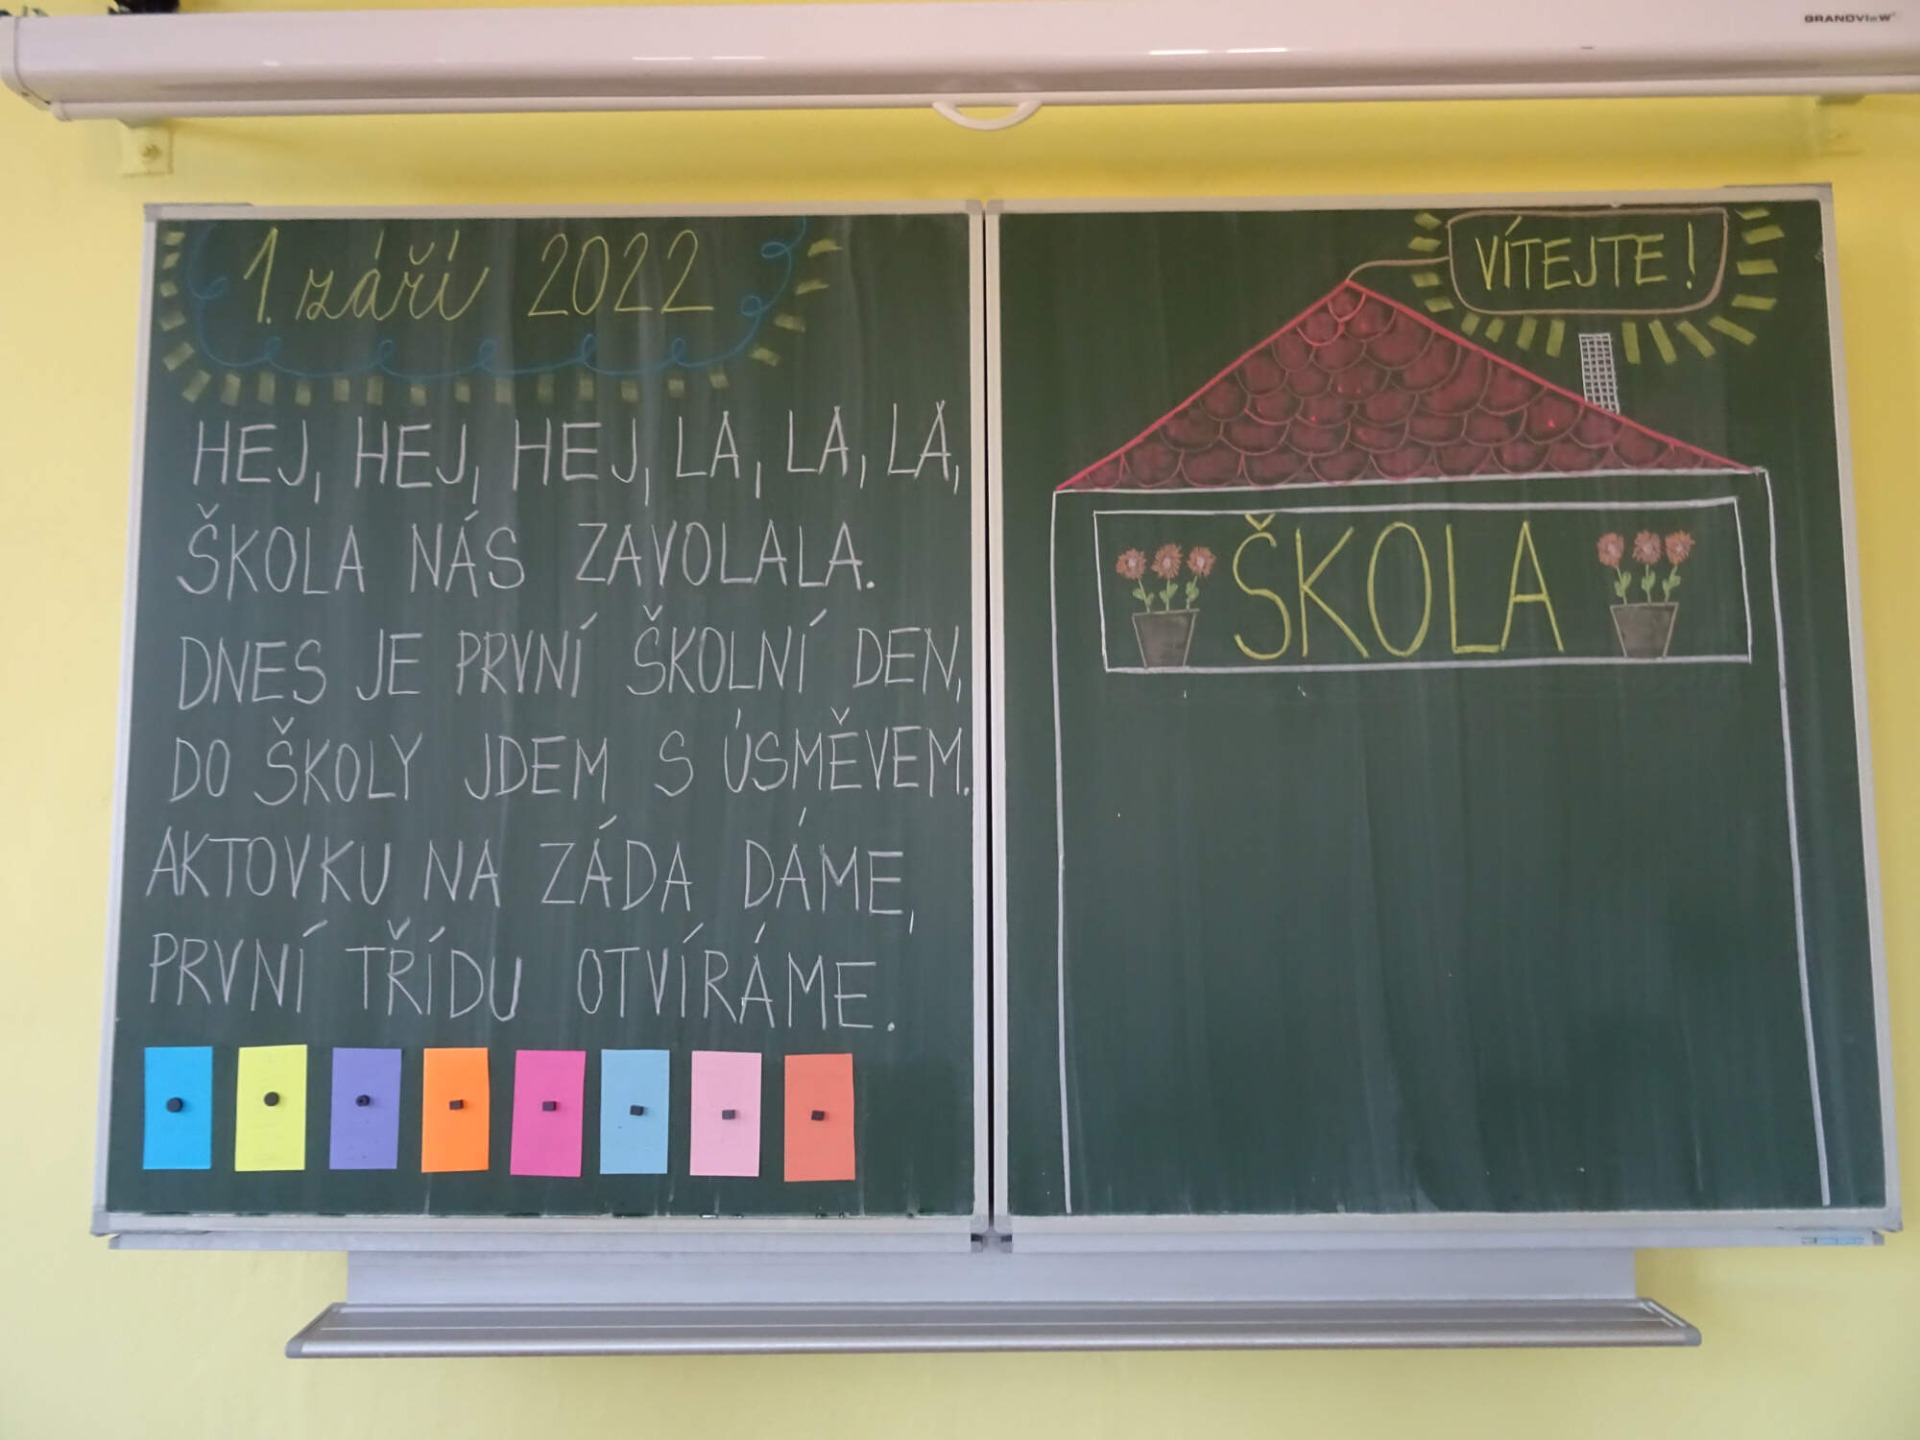 GRANDVIEW
1. září 2022
HEJ, HEJ, HEJ, LA, LA, LA,
ŠKOLA NÁS ZAVOLALA.
DNES JE PRVNÍ ŠKOLNÍ DEN,
DO ŠKOLY JDEM S ÚSMĚVEM.
AKTOVKU NA ZÁDA DÁME,
PRVNÍ TŘÍDU OTVÍRÁME.
VÍTEJTE!
ŠKOLA